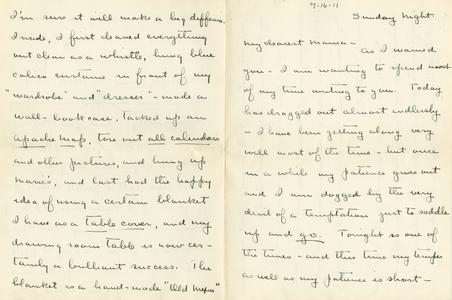 7-16-11
Sunday Night.
My dearest Mama-
As I warned
you - I am wanting to spend most
of my time writing to you. Today
has dragged out almost endlessly
- I have been getting along very
well most of the time - but once
in a while my patience gives out
and I am dogged by the very
devil of a temptation just to saddle
up and go. Tonight is one of
the times - and this time my temper
as well as my patience is short -
I'm sure it will make a big difference.
Inside, I first cleaned everything
out clean as a whistle, hung blue
calico curtains in front of my
"wardrobe" and "dresser" - made a
wall-bookcase, tacked up an
Apache map, tore out all calendars
and other pictures, and hung up
Marie's, and last had the happy
idea of using a certain blanket
I have as a table cover, and my
drawing room table is now cer-
tainly a brilliant success. The
blanket is a hand-made "Old Mexico"